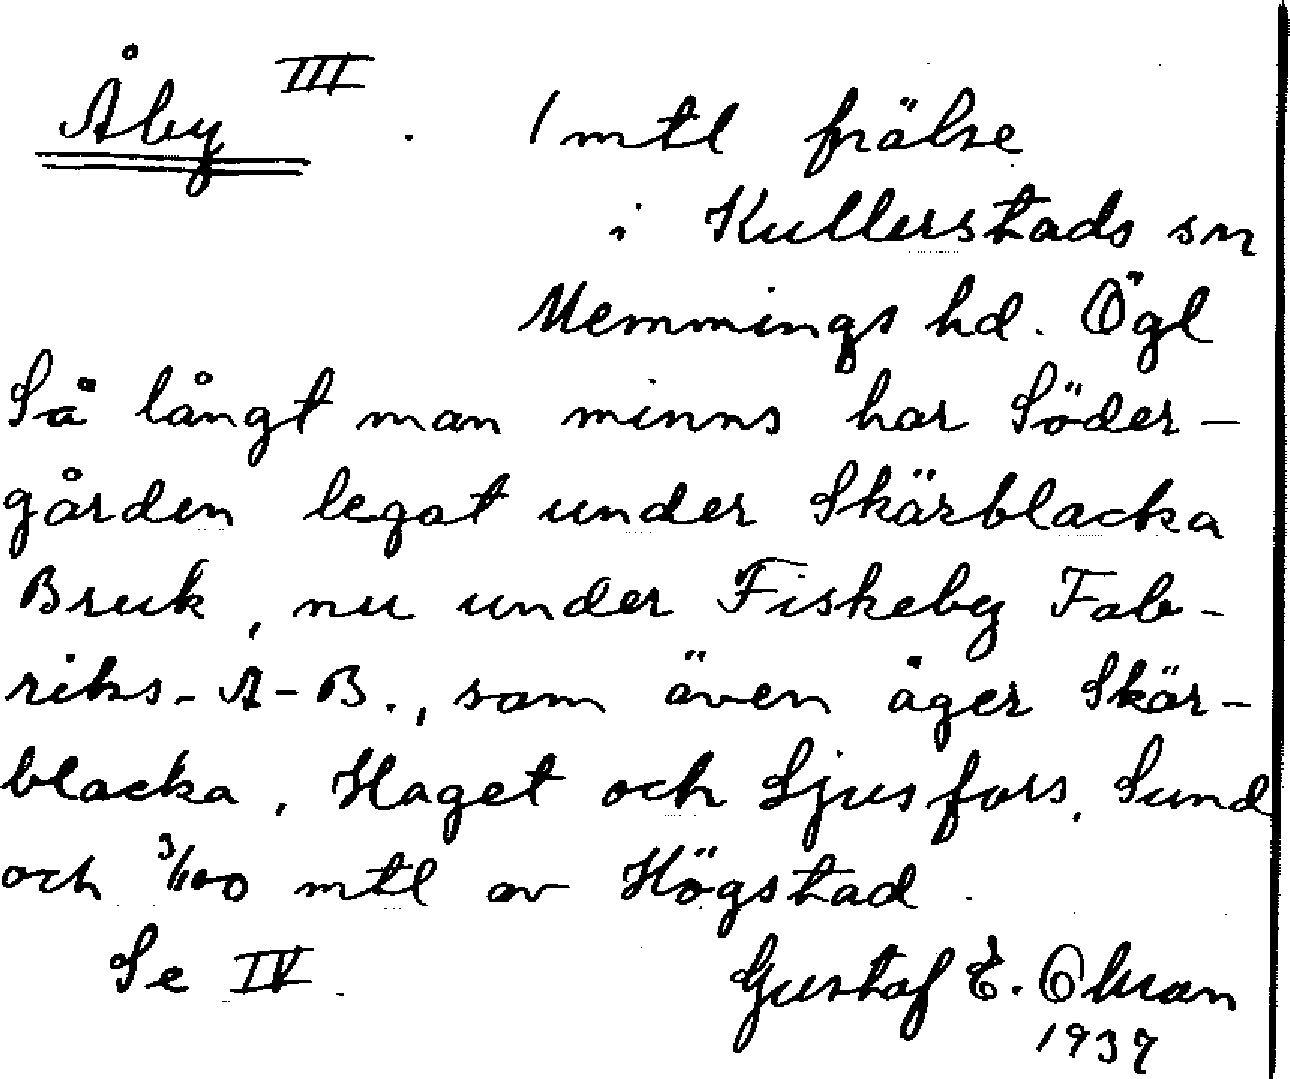 Åby III. 1 mtl frälse
i Kullerstads sn
Memmings hd. Ögl
Så långt man minns har Söder-
gården legat under Skärblacka
Bruk, nu under Fiskeby Fab-
riks-A-B., som även äger Skär-
blacka, Haget och Ljusfors, Sund
och 3/100 mtl av Högstad.
Se IV. Gustaf E.
1937